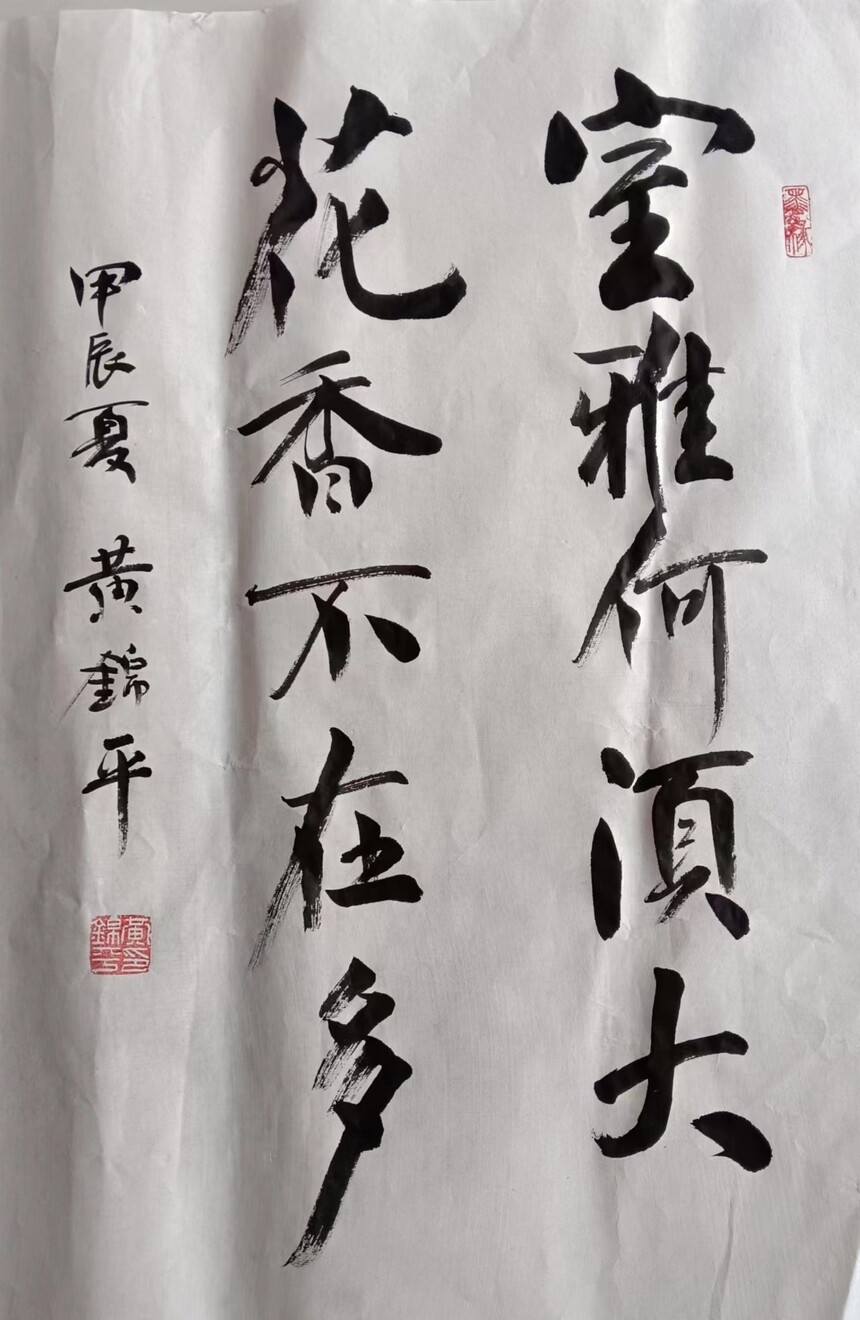 室雅何須大
花香不在多
甲辰夏 黄錦平
黄印錦平